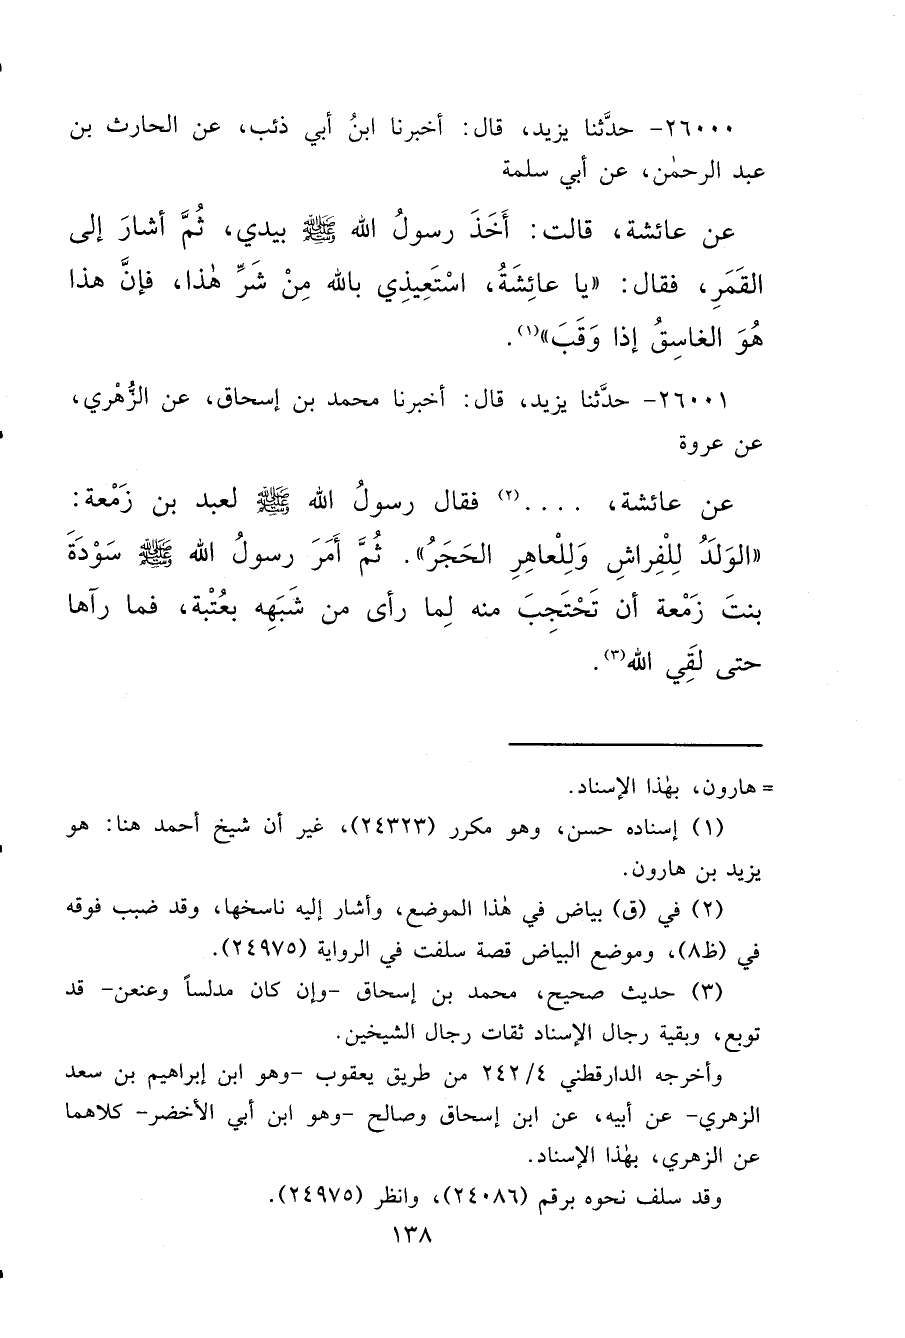 ٢٦٠٠٠- حدَّثنا يزيد، قال: أخبرنا ابنُ أبي ذئب، عن الحارث بن
عبد الرحمٰن، عن أبي سلمة
عن عائشة، قالت: أَخَذَ رسولُ الله ﷺ بيدي، ثُمَّ أشارَ إلى
القَمَرِ، فقال: «يا عائِشَةُ، اسْتَعِيذِي بالله مِنْ شَرِّ هٰذا، فإنَّ هذا
هُوَ الغاسِقُ إذا وَقَبَ»(١).
٢٦٠٠١- حدَّثنا يزيد، قال: أخبرنا محمد بن إسحاق، عن الزُّهْري،
عن عروة
عن عائشة، ....(٢) فقال رسولُ الله ﷺ لعبد بن زَمْعة:
«الوَلَدُ لِلْفِراشِ وَلِلْعاهِرِ الحَجَرُ». ثُمَّ أَمَرَ رسولُ الله ﷺ سَوْدَةَ
بنتَ زَمْعة أن تَحْتَجِبَ منه لِما رأى من شَبَهِه بعُتْبة، فما رآها
حتى لقِيَ الله(٣).
= هارون، بهٰذا الإسناد.
(١) إسناده حسن، وهو مكرر (٢٤٣٢٣)، غير أن شيخ أحمد هنا: هو
يزيد بن هارون.
(٢) في (ق) بياض في هٰذا الموضع، وأشار إليه ناسخها، وقد ضبب فوقه
في (ظ٨)، وموضع البياض قصة سلفت في الرواية (٢٤٩٧٥).
(٣) حديث صحيح، محمد بن إسحاق -وإن كان مدلساً وعنعن- قد
توبع، وبقية رجال الإسناد ثقات رجال الشيخين.
وأخرجه الدارقطني ٢٤٢/٤ من طريق يعقوب -وهو ابن إبراهيم بن سعد
الزهري- عن أبيه، عن ابن إسحاق وصالح -وهو ابن أبي الأخضر- كلاهما
عن الزهري، بهٰذا الإسناد.
وقد سلف نحوه برقم (٢٤٠٨٦)، وانظر (٢٤٩٧٥).
١٣٨